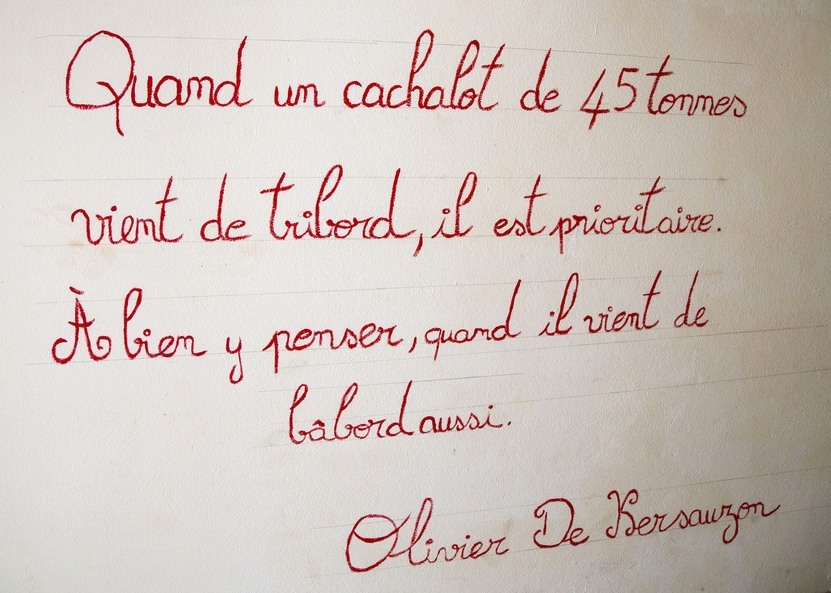 Quand un cachalot de 45 tonnes
vient de tribord, il est prioritaire.
À bien y penser, quand il vient de
bâbord aussi.
Olivier De Kersauzon